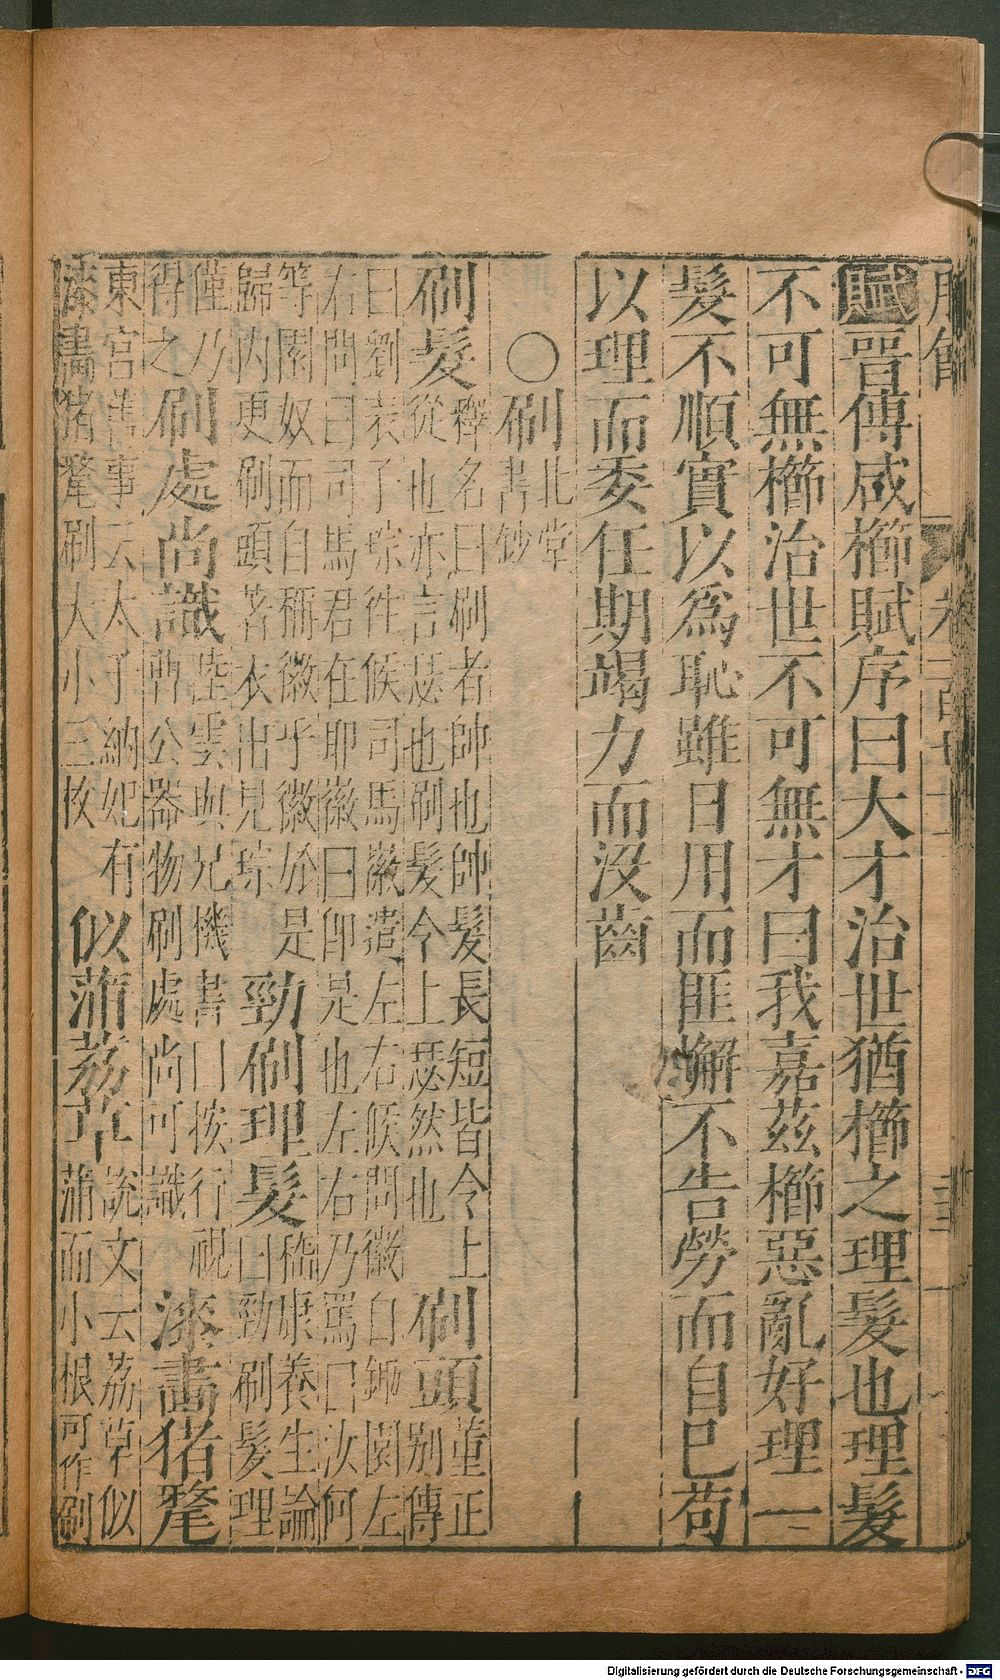 賦晉傅咸櫛賦序曰大才治世猶櫛之理髮也理髮
不可無櫛治世不可無才曰我嘉茲櫛惡亂好理一
髮不順實以為恥雖日用而匪懈不告勞而自已苟
以理而委任期竭力而没齒
○刷北堂書鈔
刷髮釋名曰刷者帥也帥髮長短皆令上從也亦言瑟也刷髮令上瑟然也刷頭董正別傳
曰劉表子琮往候司馬徽遣左右候問徽自鋤園左右問曰司馬君在耶徽曰卽是也左右乃罵曰汝何
等園奴而自稱徽乎徽於是歸内更刷頭著衣出見琮勁刷理髮嵇康養生論曰勁刷髮理
僅乃得之刷處尚識陸雲與兄機書曰按行視曹公器物刷處尚可識漆畫猪氂
東宮舊事云太子納妃有漆畫猪氂刷大小三枚似蒲荔草說文云荔草似蒲而小根可作刷
Digitalisierung gefördert durch die Deutsche Forschungsgemeinschaft - DFG